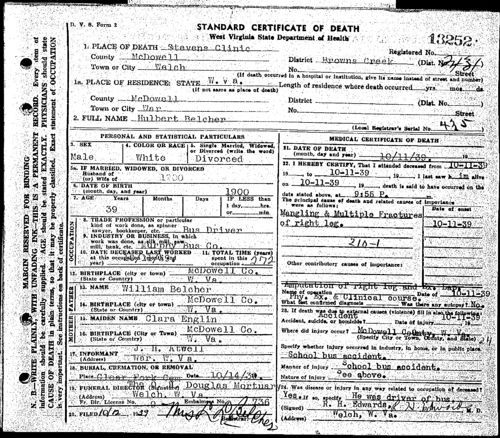 D. V. S. Form 2
STANDARD CERTIFICATE OF DEATH
West Virginia State Department of Health
13252
1. PLACE OF DEATH Stevens Clinic
Registered No.
County McDowell
District Browns Creek (Dist. No.
Town or City Welch
Street
(If death occurred in a hospital or institution, give its name instead of street and number)
1a. PLACE OF RESIDENCE: STATE W. Va.
Length of residence where death occurred yrs. mos ds.
(If not same as place of death)
County McDowell
District
Town or City War
Street
2. FULL NAME Hulbert Belcher
(Local Registrar's Serial No. 475
PERSONAL AND STATISTICAL PARTICULARS
3. SEX Male
4. COLOR OR RACE White
5. Single, Married, Widowed, or Divorced (write the word) Divorced
5a. IF MARRIED, WIDOWED, OR DIVORCED
Husband of
(or) Wife of
6. DATE OF BIRTH
(month, day, and year) 1900
7. AGE Years 39 Months Days IF LESS than 1 day, hrs. or min.
8. TRADE PROFESSION or particular kind of work done, as spinner, sawyer, bookkeeper, etc. Bus Driver
9. INDUSTRY OR BUSINESS, in which work was done, as silk mill, saw mill, bank, etc. Murphy Bus Co.
10. DATE DECEASED LAST WORKED at this occupation (month and year)
11. TOTAL TIME (years) spent in this occupation
12. BIRTHPLACE (city or town) McDowell Co.
(State or Country) W. Va.
13. NAME William Belcher
14. BIRTHPLACE (city or town) McDowell Co.
(State or Country) W. Va.
15. MAIDEN NAME Clara Englin
16. BIRTHPLACE (City or Town) McDowell Co.
(State or Country) W. Va.
17. INFORMANT J. H. Atwell
(Address) War, W. Va.
18. BURIAL, CREMATION, OR REMOVAL
Place Clear Fork Date 10/14/39
19. FUNERAL DIRECTOR The Douglas Mortuary
(Address) Welch, W. Va.
Fu. Dir. License No. Embalmers No. 736
20. FILED 10/12 1939
MEDICAL CERTIFICATE OF DEATH
21. DATE OF DEATH
(month, day, and year) 10/11/39
22. I HEREBY CERTIFY, That I attended deceased from 10-11-39
to 10-11-39 I last saw him alive
on 10-11-39 death is said to have occurred on the
date stated above, at 9:55 P.
The principal cause of death and related causes of importance were as follows:
Date of onset
Mangling & Multiple Fractures of right leg. 10-11-39
Other contributory causes of importance:
Name of operation Amputation of right leg
What test confirmed diagnosis? Phy. Ex. & Clinical course. Was there an autopsy? No
23. If death was due to external causes (violence) fill in also the following:
Accident, suicide, or homicide? Accident
Where did injury occur? McDowell County, W. Va.
(Specify City or Town, County, and State)
Specify whether injury occurred in industry, in home, or in public place.
School bus accident.
Manner of injury School bus accident.
Nature of injury See above.
24. Was disease or injury in any way related to occupation of deceased?
Yes. If so, specify He was driver of bus
R. H. Edwards
Welch, W. Va.
MARGIN RESERVED FOR BINDING
N. B.—WRITE PLAINLY, WITH UNFADING INK—THIS IS A PERMANENT RECORD. Every item of
CAUSE OF DEATH in plain terms, so that it may be properly classified. Exact statement of OCCUPATION
is very important. See instructions on back of certificate.